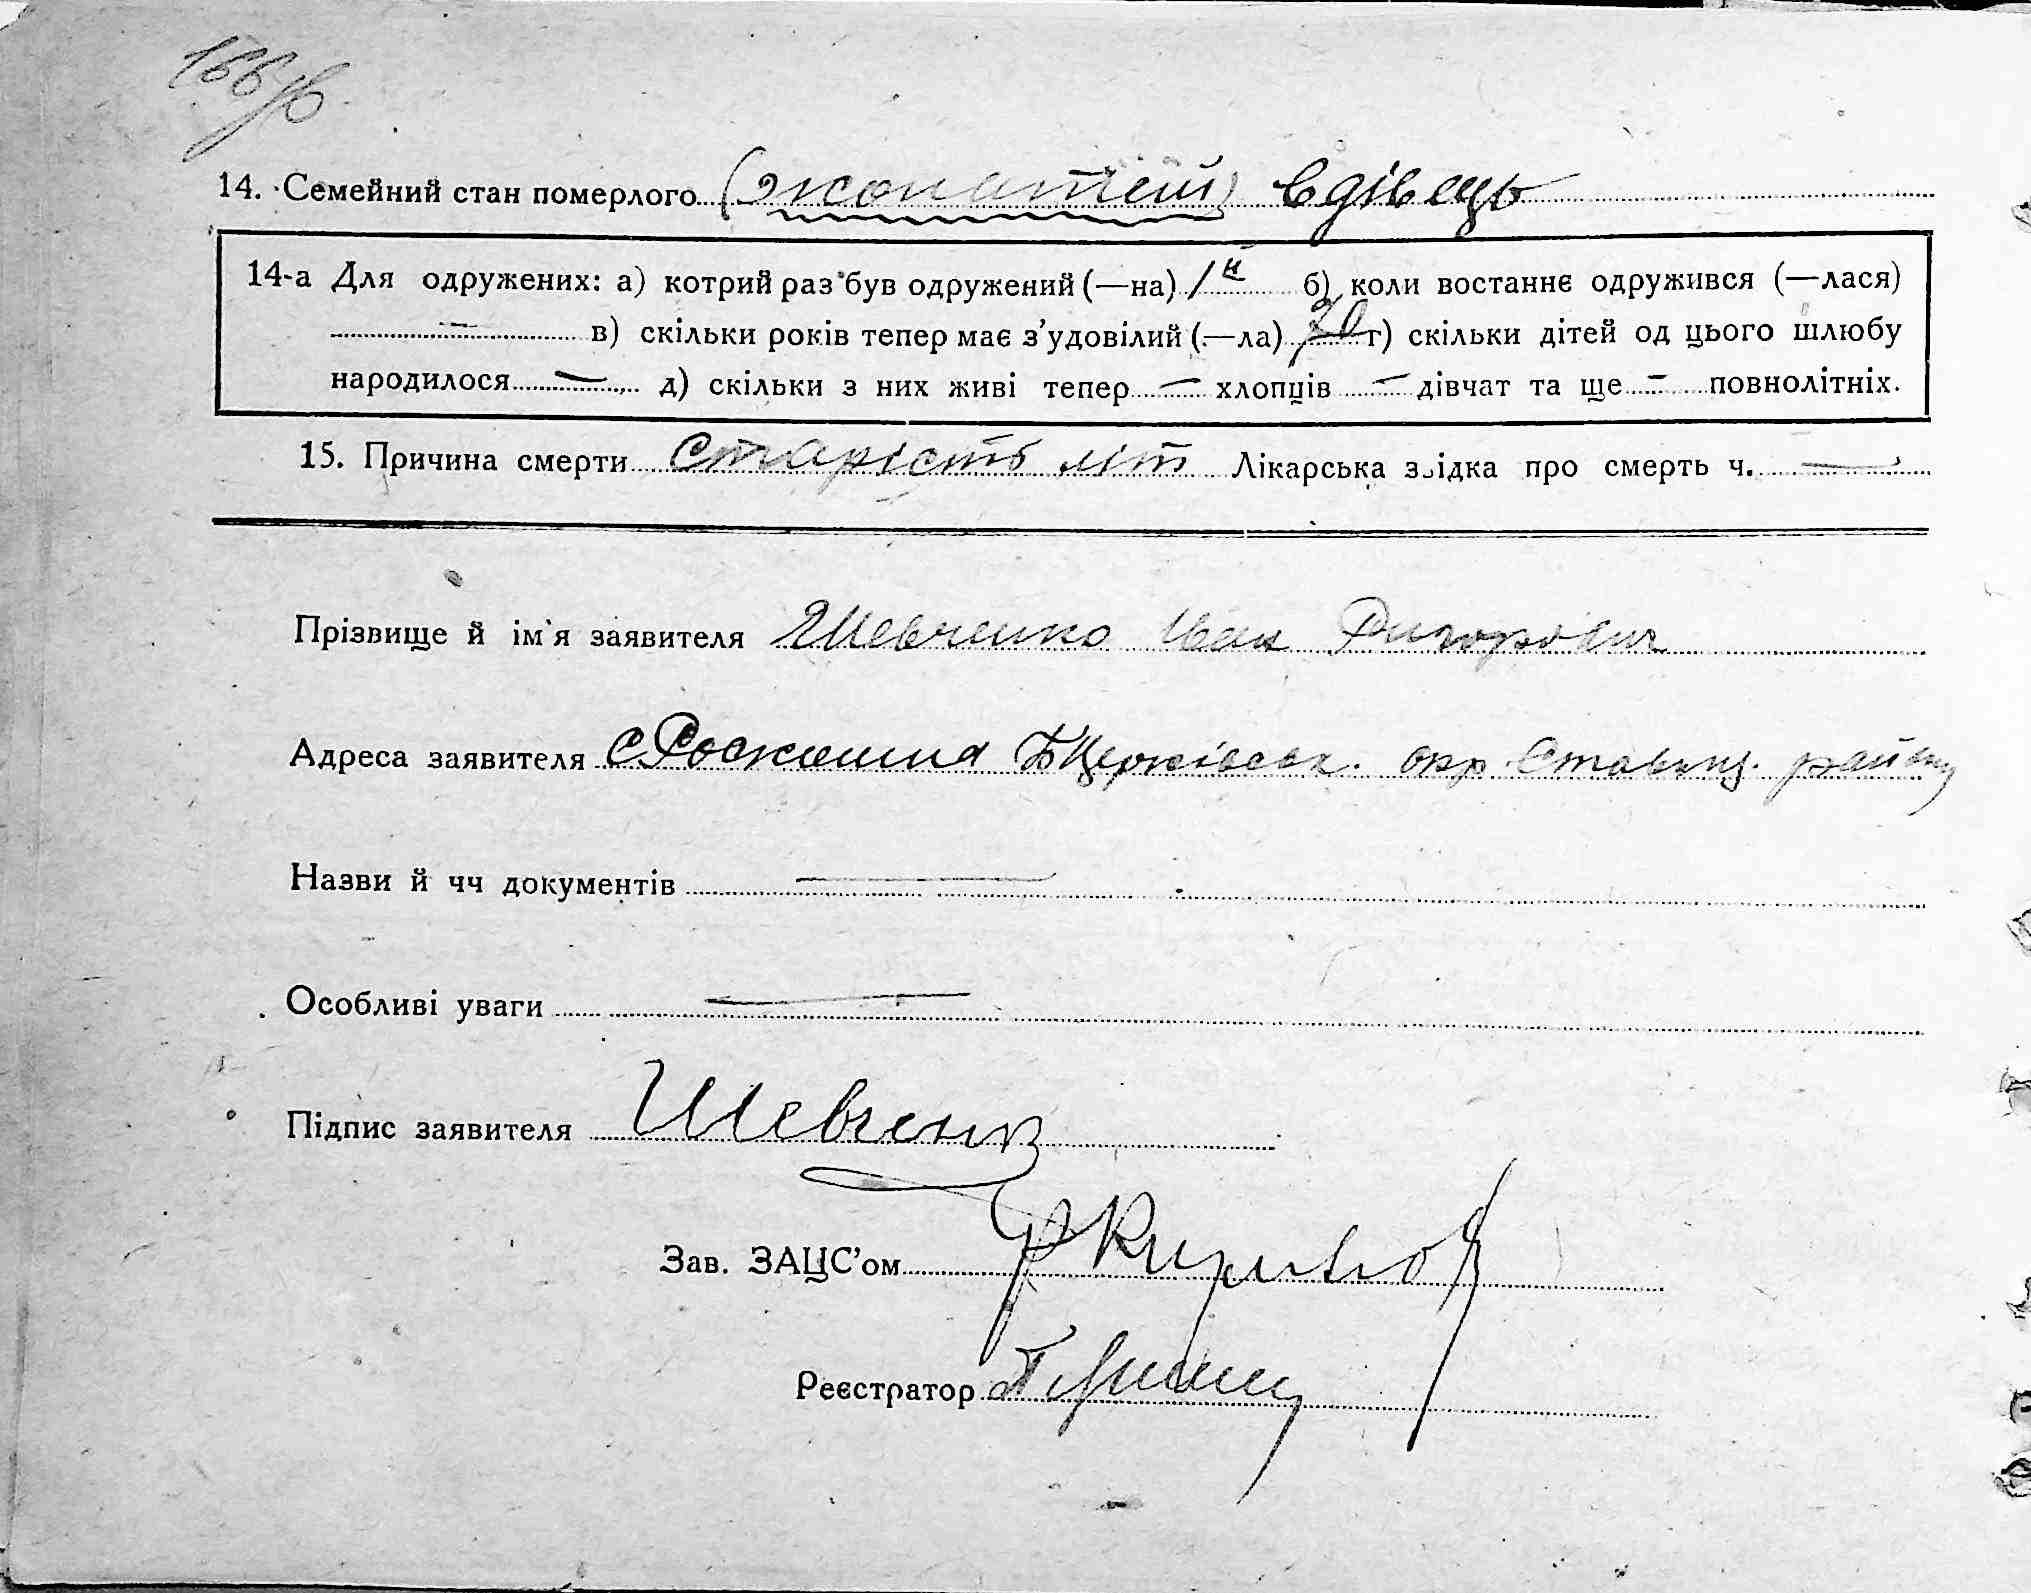 14. Семейний стан померлого (жонатий) вдівець
14-а Для одружених: а) котрий раз був одружений (—на) 1й б) коли востаннє одружився (—лася)
— в) скільки років тепер має з’удовілий (—ла) 70 г) скільки дітей од цього шлюбу
народилося — д) скільки з них живі тепер — хлопців — дівчат та ще — повнолітніх.
15. Причина смерти Старість літ Лікарська звідка про смерть ч. —
Прізвище й ім’я заявителя Шевченко Іван Григорович
Адреса заявителя с Роскошна БЦерківськ. окр. Ставищ. району
Назви й чч документів —
Особливі уваги —
Підпис заявителя Шевченко
Зав. ЗАЦС’ом
Реєстратор